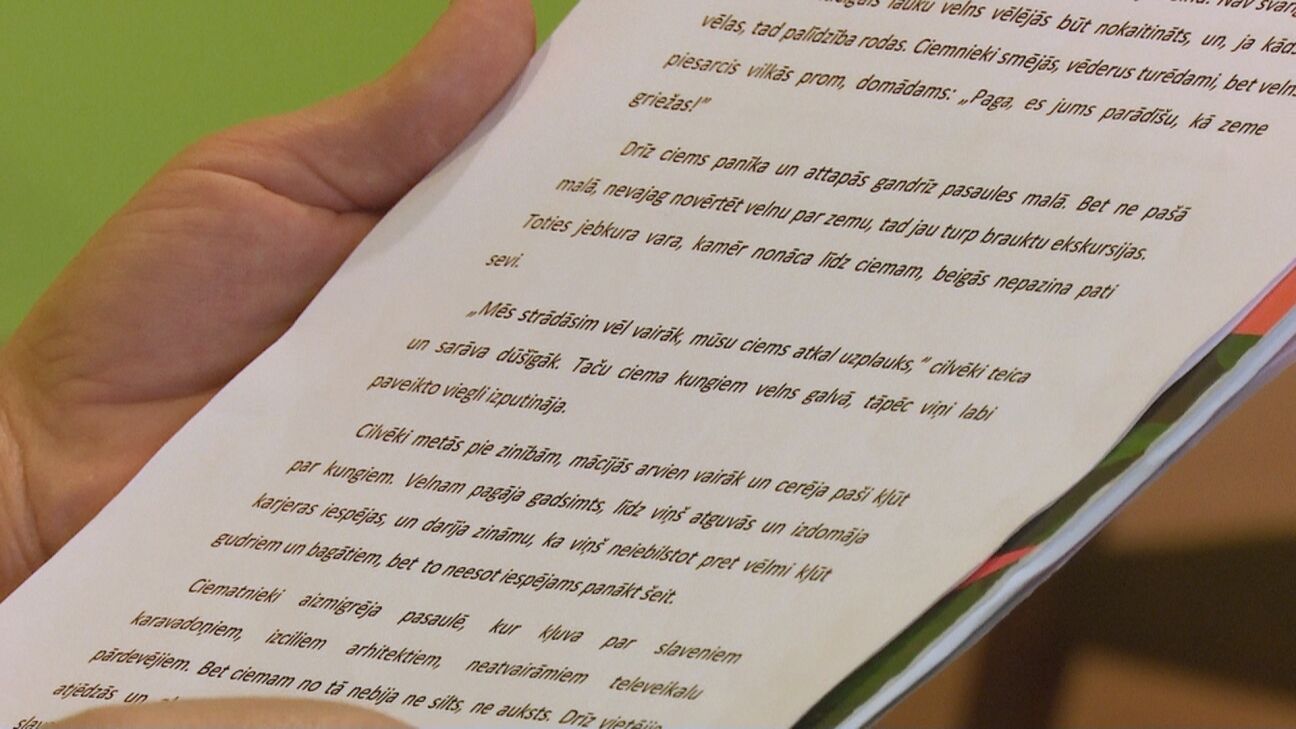 lauku velns vēlējās būt nokaitināts, un, ja kāds
vēlas, tad palīdzība rodas. Ciemnieki smējās, vēderus turēdami, bet velns
piesarcis vilkās prom, domādams: „Paga, es jums parādīšu, kā zeme
griežas!”
Drīz ciems panīka un attapās gandrīz pasaules malā. Bet ne pašā
malā, nevajag novērtēt velnu par zemu, tad jau turp brauktu ekskursijas.
Toties jebkura vara, kamēr nonāca līdz ciemam, beigās nepazina pati
sevi.
„Mēs strādāsim vēl vairāk, mūsu ciems atkal uzplauks,” cilvēki teica
un sarāva dūšīgāk. Taču ciema kungiem velns galvā, tāpēc viņi labi
paveikto viegli izputināja.
Cilvēki metās pie zinībām, mācījās arvien vairāk un cerēja paši kļūt
par kungiem. Velnam pagāja gadsimts, līdz viņš atguvās un izdomāja
karjeras iespējas, un darīja zināmu, ka viņš neiebilstot pret vēlmi kļūt
gudriem un bagātiem, bet to neesot iespējams panākt šeit.
Ciematnieki aizmigrēja pasaulē, kur kļuva par slaveniem
karavadoņiem, izciliem arhitektiem, neatvairāmiem televeikalu
pārdevējiem. Bet ciemam no tā nebija ne silts, ne auksts. Drīz
atjēdzās un